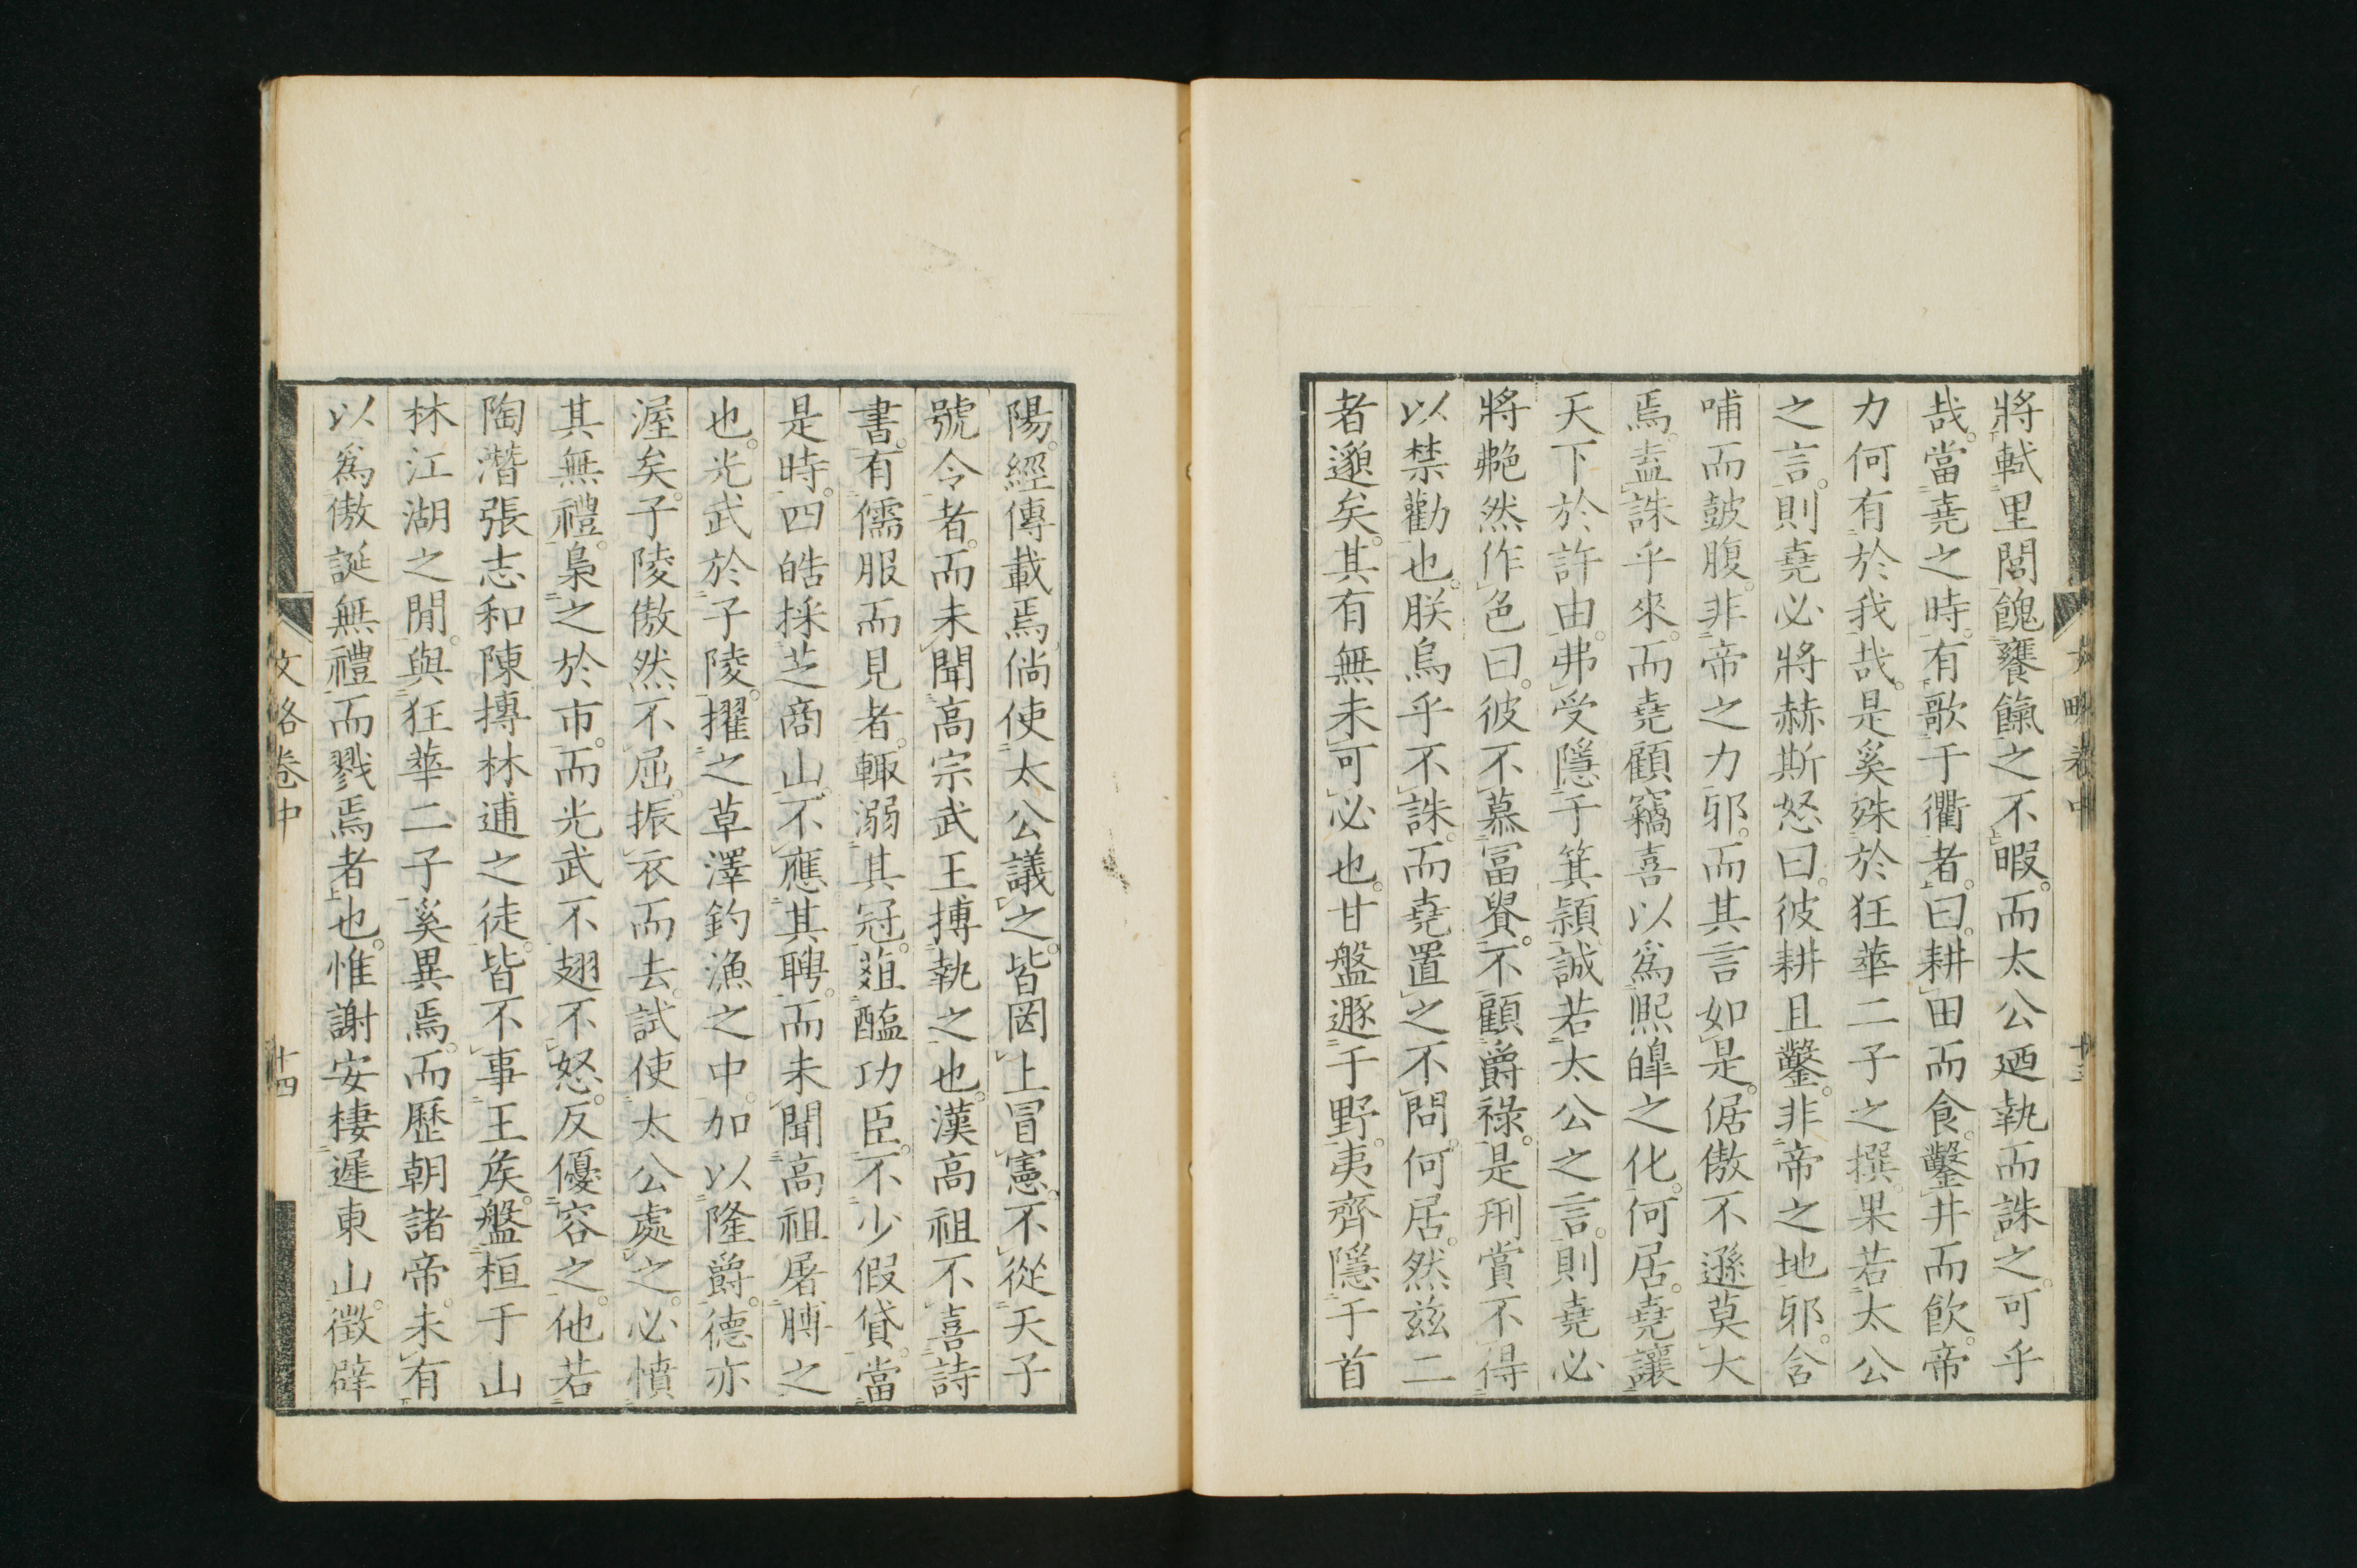 將軾里閭餽饔餼之不暇。而太公迺執而誅之。可乎
哉。當堯之時。有歌于衢者。曰。耕田而食。鑿井而飮。帝
力何有於我哉。是奚殊於狂華二子之撰。果若太公
之言。則堯必將赫斯怒曰。彼耕且鑿。非帝之地邪。含
哺而鼓腹。非帝之力邪。而其言如是。倨傲不遜莫大
焉。盍誅乎來。而堯顧竊喜以爲熙皥之化。何居。堯讓
天下於許由。弗受隱于箕潁。誠若太公之言。則堯必
將艴然作色曰。彼不慕富貴。不顧爵祿。是刑賞不得
以禁勸也。朕烏乎不誅。而堯置之不問。何居。然茲二
者邈矣。其有無未可必也。甘盤遯于野。夷齊隱于首
陽。經傳載焉。倘使太公議之。皆罔上冒憲。不從天子
號令者。而未聞高宗武王搏執之也。漢高祖不喜詩
書。有儒服而見者。輒溺其冠。葅醢功臣。不少假貸。當
是時。四皓採芝商山。不應其聘。而未聞高祖屠膊之
也。光武於子陵。擢之草澤釣漁之中。加以隆爵。德亦
渥矣。子陵傲然不屈。振衣而去。試使太公處之。必憤
其無禮。梟之於市。而光武不翅不怒。反優容之。他若
陶潛張志和陳摶林逋之徒。皆不事王矦。盤桓于山
林江湖之閒。與狂華二子奚異焉。而歷朝諸帝。未有
以爲傲誕無禮而戮焉者也。惟謝安棲遲東山。徵辟
文略卷中
十四